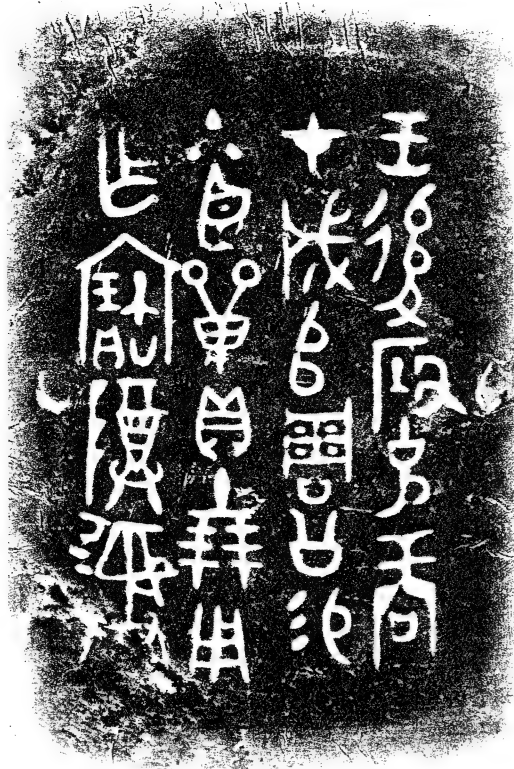 王後𠨘克商
才成𠂤周公易
小臣單貝十朋用
乍寶隣彝